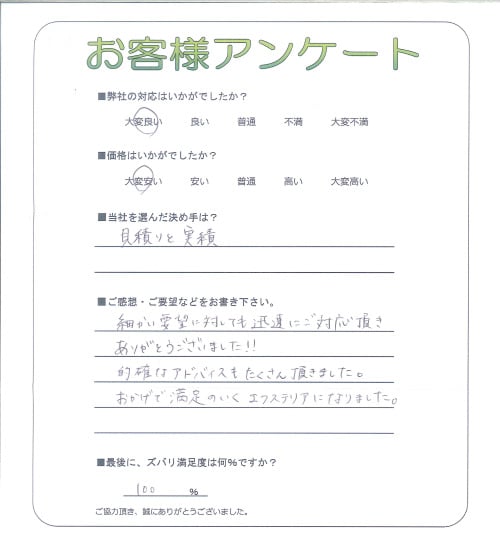 お客様アンケート
■弊社の対応はいかがでしたか？
大変良い 良い 普通 不満 大変不満
■価格はいかがでしたか？
大変安い 安い 普通 高い 大変高い
■当社を選んだ決め手は？
見積りと実績
■ご感想・ご要望などをお書き下さい。
細かい要望に対しても迅速にご対応頂き
ありがとうございました!!
的確なアドバイスもたくさん頂きました。
おかげで満足のいくエクステリアになりました。
■最後に、ズバリ満足度は何%ですか？
100 %
ご協力頂き、誠にありがとうございました。